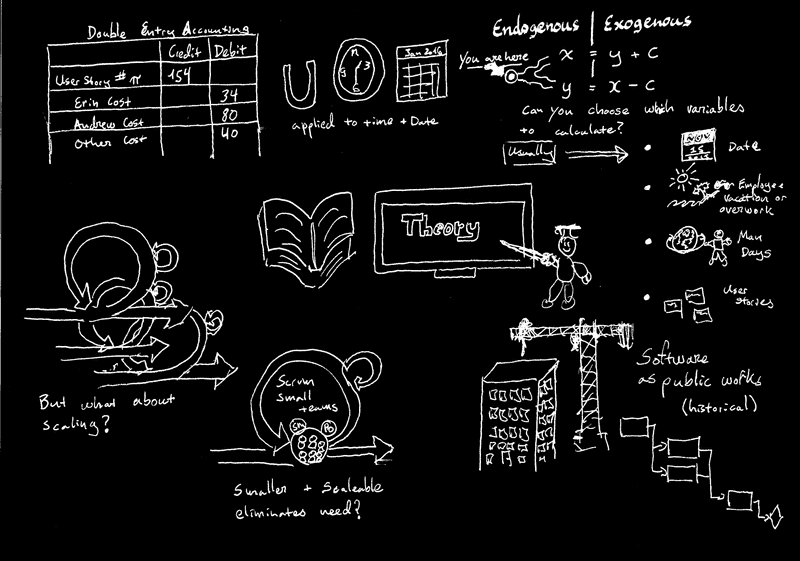 Double Entry Accounting
Credit Debit
User Story # π 154
Erin Cost 34
Andrew Cost 80
Other Cost 40
12
3
6
9
Jan 2016
applied to time + Date
Endogenous | Exogenous
You are here
x = y + C
y = x - C
Can you choose which variables
to calculate?
Usually
15
Date
Employee
vacation or
overwork
Man
Days
User
stories
Theory
But what about
scaling?
Scrum
small
teams
SM PO
Smaller + Scaleable
eliminates need?
Software
as public works
(historical)